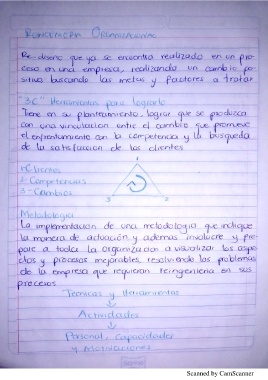 Re-diseño que ya se encuentra realizado en un pro-
ceso en una empresa, realizando un cambio po-
sitivo buscando las metas y factores a tratar
"3C" Herramientas para lograrlo
Tiene en su planteamiento, lograr que se produzca
con una vinculacion entre el cambio que promueve
el enfrentamiento con la competencia y la busqueda
de la satisfaccion de los clientes
1-Clientes
2-Competencias
3-Cambios
1
3
2
Metodologia
La implementacion de una metodologia que indique
la manera de actuación y ademas involucre y pre-
pare a toda la organizacion a visualizar los aspe-
ctos y procesos mejorables, resolviendo los problemas
de la empresa que requieran reingenieria en sus
procesos
Tecnicas y herramientas
Actividades
Personal, Capacidades
y Motivaciones
Scanned by CamScanner